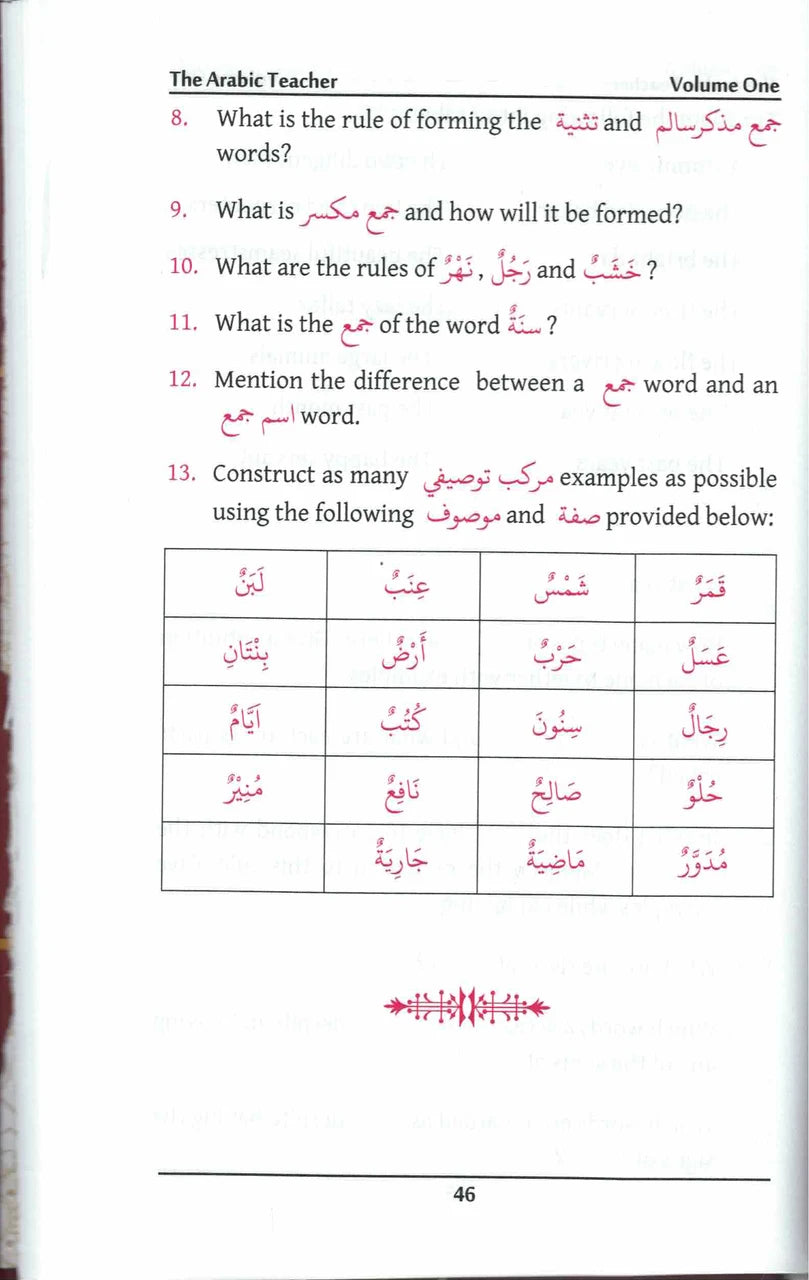 The Arabic Teacher Volume One
8. What is the rule of forming the تثنية and جمع مذكر سالم
words?
9. What is جمع مكسر and how will it be formed?
10. What are the rules of نَهْرٌ , رَجُلٌ and خَشَبٌ ?
11. What is the جمع of the word سَنَةٌ ?
12. Mention the difference between a جمع word and an
اسم جمع word.
13. Construct as many مركب توصيفي examples as possible
using the following موصوف and صفة provided below:
قَمَرٌ شَمْسٌ عِنَبٌ لَبَنٌ
عَسَلٌ حَرْبٌ أَرْضٌ بِنْتَانِ
رِجَالٌ سِنُونَ كُتُبٌ اَيَّامٌ
حُلْوٌ صَالِحٌ نَافِعٌ مُنِيْرٌ
مُدَوَّرٌ مَاضِيَةٌ جَارِيَةٌ
46